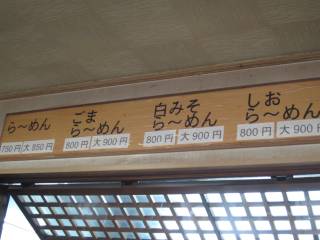 ら～めん
750円 大850円
ごま
ら～めん
800円 大900円
白みそ
ら～めん
800円 大900円
しお
ら～めん
800円 大900円